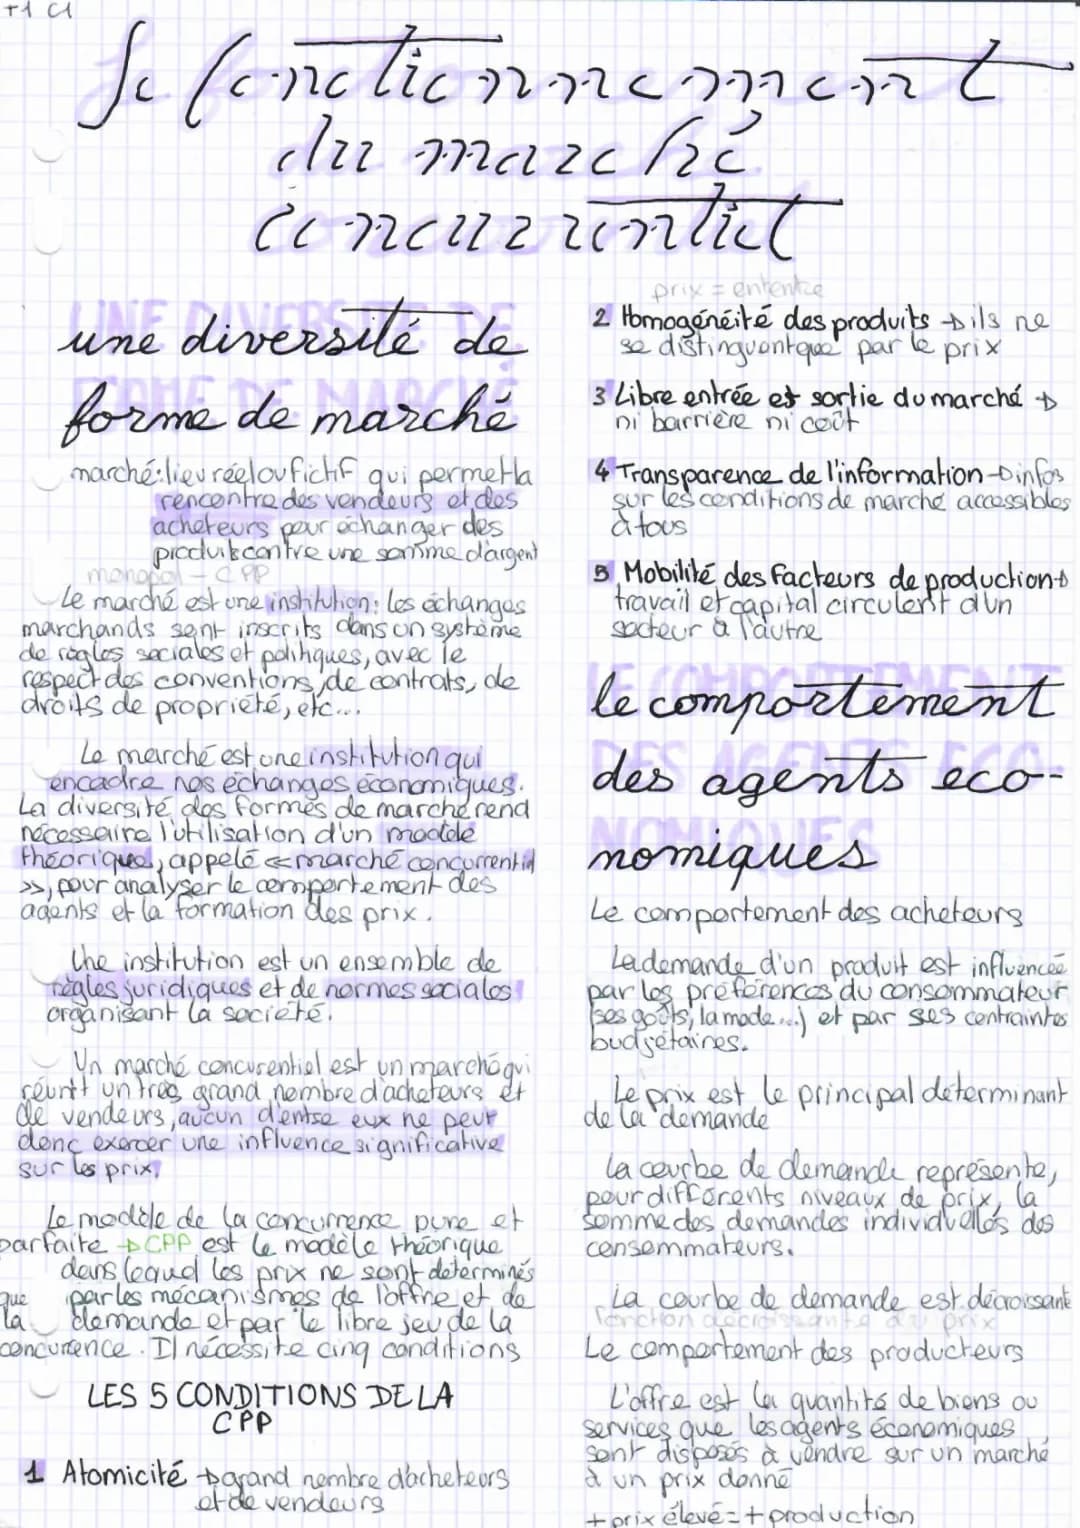 T1 C1
Le fonctionnement
du marché
concurrentiel
UNE DIVERSITE DE
une diversité de
FORME DE MARCHE
forme de marché
marché: lieu réel ou fictif qui permet la
rencontre des vendeurs et des
acheteurs pour échanger des
produits contre une somme d'argent
monopol - CPP
Le marché est une institution: les échanges
marchands sont inscrits dans un système
de règles sociales et politiques, avec le
respect des conventions, de contrats, de
droits de propriété, etc...
Le marché est une institution qui
encadre nos échanges économiques.
La diversité des formes de marché rend
nécessaire l'utilisation d'un modèle
théorique, appelé « marché concurrentiel
», pour analyser le comportement des
agents et la formation des prix.
Une institution est un ensemble de
règles juridiques et de normes sociales
organisant la société.
Un marché concurentiel est un marché qui
réunit un très grand nombre d'acheteurs et
de vendeurs, aucun d'entre eux ne peut
donc exercer une influence significative
sur les prix.
Le modèle de la concurrence pure et
parfaite → CPP est le modèle théorique
dans lequel les prix ne sont déterminés
que par les mécanismes de l'offre et de
la demande et par le libre jeu de la
concurrence. Il nécessite cinq conditions
LES 5 CONDITIONS DE LA
CPP
1 Atomicité → grand nombre d'acheteurs
et de vendeurs
prix = ententre
2 Homogénéité des produits → ils ne
se distinguent que par le prix
3 Libre entrée et sortie du marché →
ni barrière ni coût
4 Transparence de l'information → infos
sur les conditions de marché accessibles
à tous
5 Mobilité des facteurs de production →
travail et capital circulent d'un
secteur à l'autre
LE COMPORTEMENT
le comportement
DES AGENTS ECO-
des agents eco-
NOMIQUES
nomiques
Le comportement des acheteurs
La demande d'un produit est influencée
par les préférences du consommateur
(ses goûts, la mode...) et par ses contraintes
budgétaires.
Le prix est le principal déterminant
de la demande
La courbe de demande représente,
pour différents niveaux de prix, la
somme des demandes individuelles des
consommateurs.
La courbe de demande est décroissante
fonction décroissante du prix
Le comportement des producteurs
L'offre est la quantité de biens ou
services que les agents économiques
sont disposés à vendre sur un marché
à un prix donné
+ prix élevé = + production